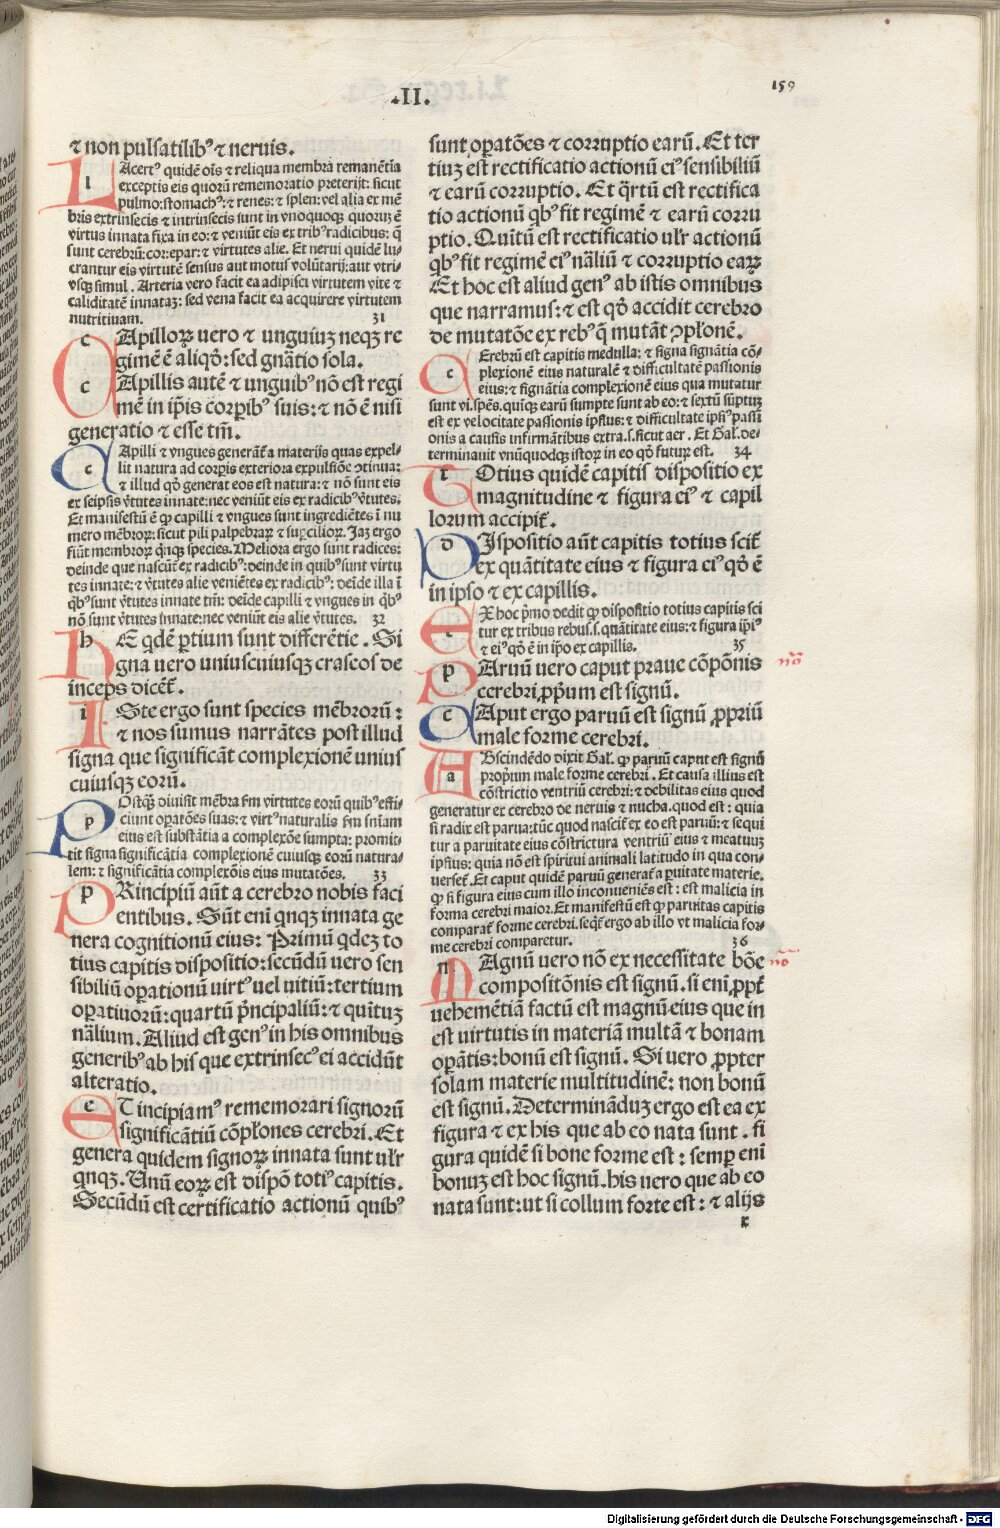 .II.
159
⁊ non pulsatilibꝰ ⁊ neruis.
LAcertꝰ quidē oīs ⁊ reliqua membra remanētia
exceptis eis quorū rememoratio preterijt: sicut
pulmo:stomachꝰ:⁊ renes: ⁊ splen:vel alia ex mē
bris extrinsecis ⁊ intrinsecis sunt in vnoquoqꝫ quoruꝫ ē
virtus innata fixa in eo:⁊ veniūt eis ex tribꝰ radicibus: q̄
sunt cerebrū:cor:epar: ⁊ virtutes alie. Et nerui quidē lu-
crantur eis virtutē sensus aut motus volūtarij:aut vtri-
vsqꝫ simul. Arteria vero facit ea adipisci virtutem vite ⁊
caliditatē innataꝫ: sed vena facit ea acquirere virtutem
nutritiuam. 31
CApilloꝝ vero ⁊ unguiuꝫ neqꝫ re
gimē ē aliqō: sed gnātio sola.
CApillis autē ⁊ unguibꝰ nō est regi
mē in ip̄is corꝑibꝰ suis: ⁊ nō ē nisi
generatio ⁊ esse tm̄.
CApilli ⁊ vngues generāt̄ a materijs quas expel-
lit natura ad corꝑis exteriora expulsiōe ↄtinua:
⁊ illud qō generat eos est natura: ⁊ nō sunt eis
ex seipsis v̄tutes innate:nec veniūt eis ex radicibꝰ v̄tutes.
Et manifestū ē ꝙ capilli ⁊ vngues sunt ingrediētes ī nu
mero mēbroꝝ: sicut pili palpebraꝝ ⁊ suꝑcilioꝝ. Jaꝫ ergo
fiūt membroꝝ q̄nqꝫ species. Meliora ergo sunt radices:
deinde que nascūt̄ ex radicibꝰ: deinde in quibꝰ sunt virtu
tes innate: ⁊ v̄tutes alie veniētes ex radicibꝰ: deīde illa ī
q̄bꝰ sunt v̄tutes innate tm̄: deīde capilli ⁊ vngues in q̄bꝰ
nō sunt v̄tutes innate:nec veniūt eis alie v̄tutes. 32
HE qdē ꝑtium sunt differētie. Si
gna uero uniuscuiusqꝫ craseos de
inceps dicēt̄.
ISte ergo sunt species mēbrorū:
⁊ nos sumus narrātes post illud
signa que significāt complexionē unius
cuiusqꝫ eorū.
POstqꝫ diuisit mēbra fm virtutes eorū quibꝰ effi-
ciunt oꝑatōes suas: ⁊ virtꝰ naturalis fm sn̄iam
eius est substātia a complexōe sumpta: promit-
tit signa significātia complexionē cuiusqꝫ eorū natura-
lem: ⁊ significātia complexōis eius mutatōes. 33
PRincipiū aūt a cerebro nobis faci
entibus. Sūt eni qnqꝫ innata ge
nera cognitionū eius: Primū qdeꝫ to
tius capitis dispositio: secūdū uero sen
sibiliū oꝑationū uirtꝰ uel uitiū: tertium
oꝑatiuorū: quartū p̄ncipaliū: ⁊ quītuꝫ
nālium. Aliud est genꝰ in his omnibus
generibꝰ ab his que extrinsecꝰ ei accidūt
alteratio.
ET incipiamꝰ rememorari signorū
significātiū cōpłones cerebri. Et
genera quidem signoꝝ innata sunt ulr
qnqꝫ. Unū eoꝝ est dispō totiꝰ capitis.
Secūdū est certificatio actionū quibꝰ
sunt oꝑatōes ⁊ corruptio earū. Et ter
tiuꝫ est rectificatio actionū eiꝰ sensibiliū
⁊ earū corruptio. Et q̄rtū est rectifica
tio actionū qbꝰ fit regimē ⁊ earū corru
ptio. Quītū est rectificatio ulr actionū
qbꝰ fit regimē eiꝰ nāliū ⁊ corruptio eaꝝ
Et hoc est aliud genꝰ ab istis omnibus
que narramus: ⁊ est qō accidit cerebro
de mutatōe ex rebꝰ q̄ mutāt ↄpłonē.
CErebrū est capitis medulla: ⁊ signa signātia cō-
plexionē eius naturalē ⁊ difficultatē passionis
eius: ⁊ signātia complexionē eius qua mutatur
sunt vi.spēs. quīqꝫ earū sumpte sunt ab eo: ⁊ sextū sūptuꝫ
est ex velocitate passionis ipsius: ⁊ difficultate ipsiꝰ passi
onis a causis infirmātibus extra.s.sicut aer. Et Gal. de-
terminauit vnūquodqꝫ istoꝝ in eo qō futuꝝ est. 34
TOtius quidē capitis dispositio ex
magnitudine ⁊ figura eiꝰ ⁊ capil
lorum accipit̄.
DIspositio aūt capitis totius scit̄
ex quātitate eius ⁊ figura eiꝰ qō ē
in ipso ⁊ ex capillis.
EX hoc p̄mo dedit ꝙ dispositio totius capitis sci
tur ex tribus rebus.s.quātitate eius: ⁊ figura ip̄iꝰ
⁊ eiꝰ qō ē in ip̄o ex capillis. 35
PAruū uero caput praue cōpōnis nō
cerebri,ꝓpriū est signū.
CAput ergo paruū est signū ꝓpriū
male forme cerebri.
ABscindēdo dixit Gal. ꝙ paruū caput est signū
proprium male forme cerebri. Et causa illius est
cōstrictio ventriū cerebri: ⁊ debilitas eius quod
generatur ex cerebro de neruis ⁊ nucha. quod est: quia
si radix est parua: tūc quod nascit̄ ex eo est paruū: ⁊ sequi
tur a paruitate eius cōstrictura ventriū eius ⁊ meatuuꝫ
ipsius: quia nō est spiritui animali latitudo in qua con-
uerset̄. Et caput quidē paruū generat̄ a paruitate materie.
ꝙ si figura eius cum illo inconueniēs est: est malicia in
forma cerebri maior. Et manifestū est ꝙ paruitas capitis
comparat̄ forme cerebri. seqt̄ ergo ab illo vt malicia for-
me cerebri comparetur. 36
MAgnū uero nō ex necessitate bōe nō
compositōnis est signū. si eni ꝓpt̄
uehemētiā factū est magnū eius que in
est uirtutis in materiā multā ⁊ bonam
oꝑātis: bonū est signū. Si uero ꝓpter
solam materie multitudinē: non bonū
est signū. Determinādū ergo est ea ex
figura ⁊ ex his que ab eo nata sunt. fi
gura quidē si bone forme est: semꝑ eni
bonuꝫ est hoc signū. his uero que ab eo
nata sunt: ut si collum forte est: ⁊ alijs
x
Digitalisierung gefördert durch die Deutsche Forschungsgemeinschaft - DFG